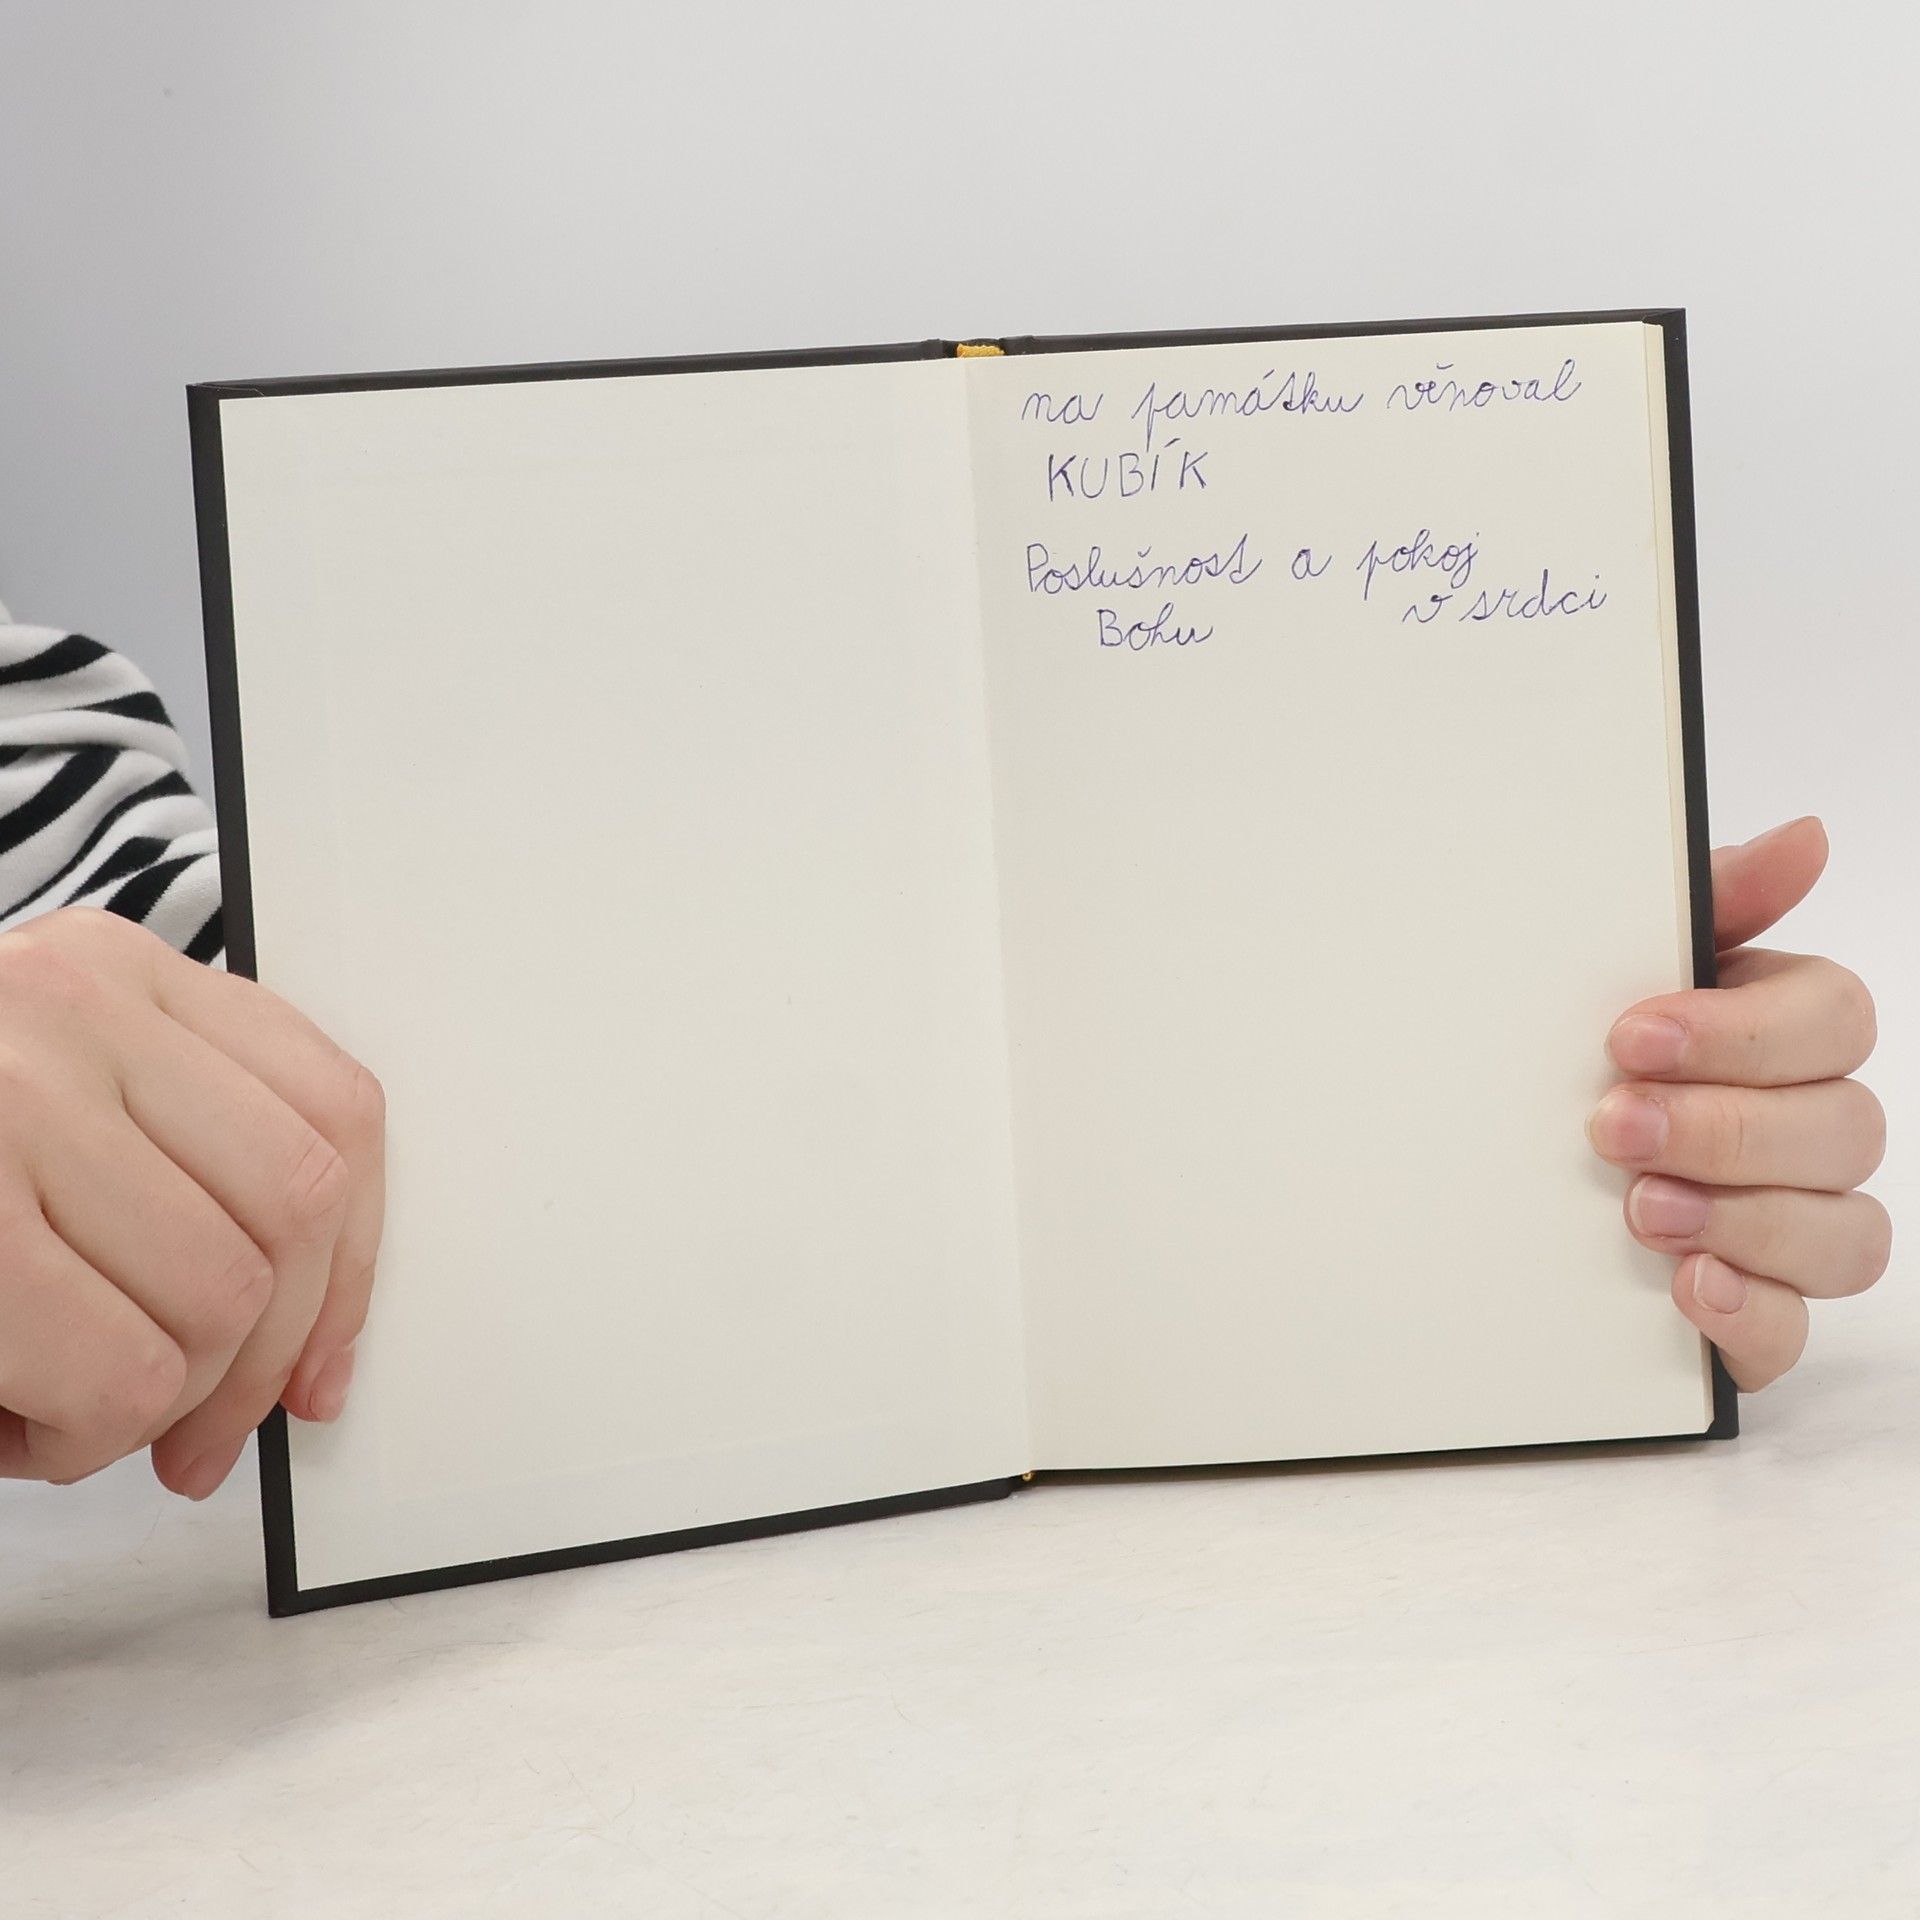 na památku věnoval
KUBÍK
Poslušnost a pokoj
Bohu v srdci